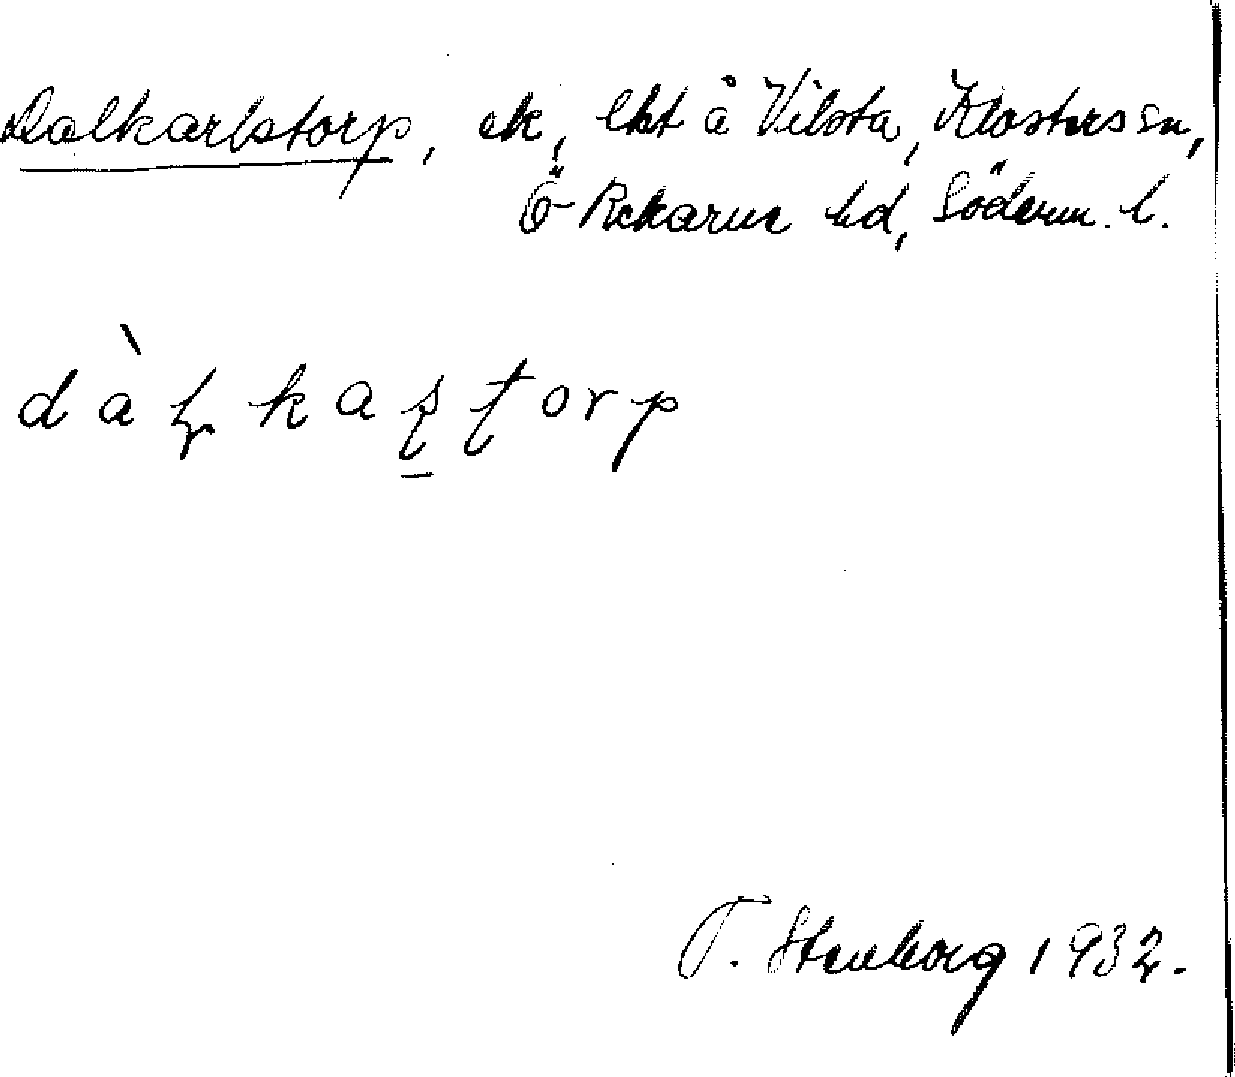 Dalkarlstorp, ek, lht å Vilsta, Klosters sn,
Ö-Rekarne hd, Söderm. l.
dàl̥kaʂʈorp
T. Stenborg 1932.